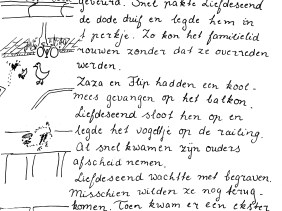 gebeurd. Snel pakte Liefdeseend
de dode duif en legde hem in
't perkje. Zo kon het familielid
rouwen zonder dat ze overreden
werden.
Zaza en Flip hadden een kool-
mees gevangen op het balkon.
Liefdeseend sloot hen op en
legde het vogeltje op de railing.
Al snel kwamen zijn ouders
afscheid nemen.
Liefdeseend wachtte met begraven.
Misschien wilden ze nog terug-
komen. Toen kwam er een ekster